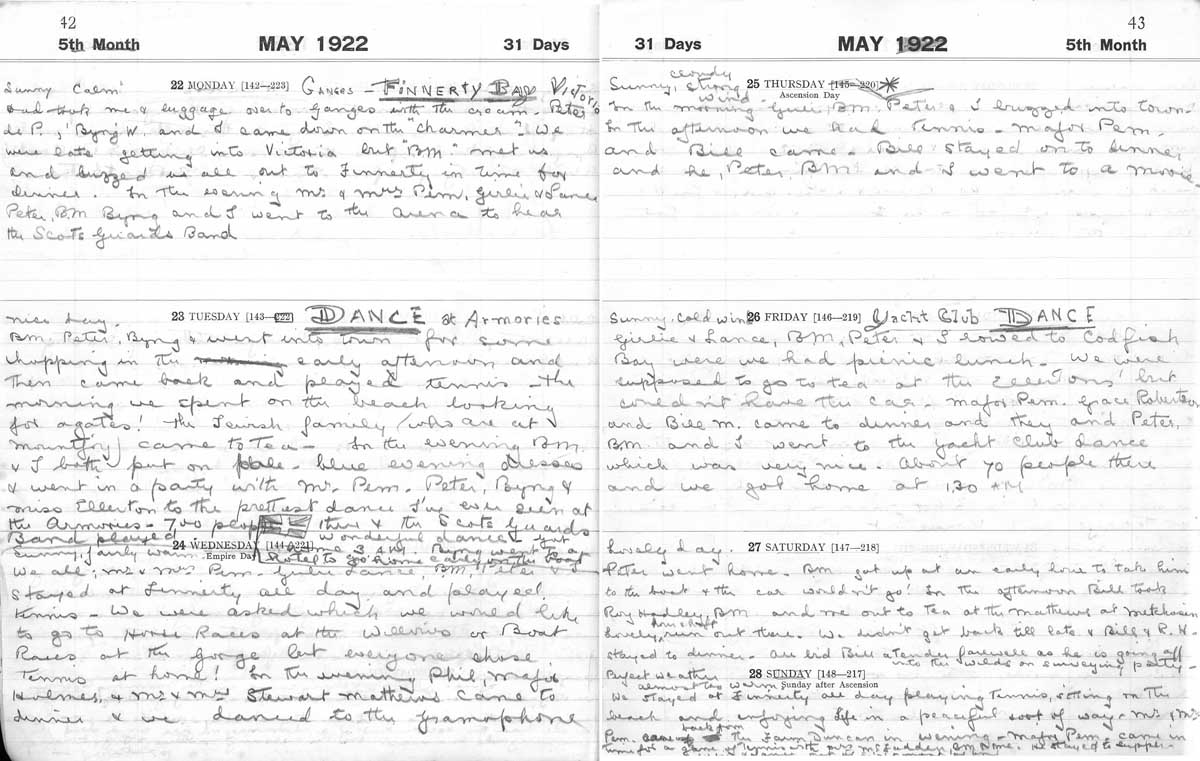 42
5th Month MAY 1922 31 Days
Sunny Calm 22 MONDAY [142—223] GANGES - FINNERTY BAY VICTORIA
took me & luggage over to Ganges with the cream. Peter
de P., Byng W. and I came down on the "Charmer". We
were late getting into Victoria but "BM" met us
and buzzed us all out to Finnerty in time for
dinner. In the evening Mr & Mrs Pem, Girlie & Lance
Peter, BM Byng and I went to the arena to hear
the Scots Guards Band
nice day. 23 TUESDAY [143—222] DANCE at Armories
BM, Peter, Byng & went into town for some
shopping in the early afternoon and
then came back and played tennis - the
morning we spent on the beach looking
for agates! The Jewish family (who are at
Mountjoy) came to Tea - In the evening BM
& I both put on pale-blue evening dresses
& went in a party with Mr. Pem. Peter, Byng &
Miss Ellerton to the prettiest dance I've ever seen at
the Armories - 700 people there & the Scots Guards
Band played. wonderful dance! got
24 WEDNESDAY [144—221] home 3 am. Byng went to a
Sunny, fairly warm Empire Day Hotel to go home early on the boat
We all, Mr & Mrs Pem. Girlie Lance, BM, Peter & I
stayed at Finnerty all day and played
tennis - We were asked which we would like
to go to Horse Races at the Willows or Boat
Races at the Gorge but everyone chose
Tennis at home! In the evening Phil, Major
Holmes, Mr Mrs Stewart Mathews came to
dinner & we danced to the gramophone
43
31 Days MAY 1922 5th Month
Sunny, cloudy strong wind 25 THURSDAY [145—220] *
Ascension Day
In the morning Girlie, BM. Peter & I buzzed into town -
In the afternoon we had Tennis - Major Pem.
and Bill came - Bill stayed on to dinner
and he, Peter, BM and I went to a movie -
Sunny, cold wind 26 FRIDAY [146—219] Yacht Club DANCE
Girlie & Lance, BM, Peter & I rowed to Codfish
Bay were we had picnic lunch - We were
supposed to go to tea at the Ellertons' but
couldn't have the car - Major Pem. Grace Robertson,
and Bill M. came to dinner and they and Peter,
BM. and I went to the yacht club dance
which was very nice. About 70 people there
and we got home at 1.30 AM
Lovely day. 27 SATURDAY [147—218]
Peter went home. BM got up at an early hour to take him
to the boat & the car wouldn't go! In the afternoon Bill took
Roy Hadley, BM and me out to Tea at the Mathews at Metchosin
Lovely run out there. We didn't get back till late & Bill & R.H
stayed to dinner. We bid Bill a tender farewell as he is going off
into the wilds on surveying party -
Perfect weather 28 SUNDAY [148—217]
almost too warm Sunday after Ascension
We stayed at Finnerty all day playing Tennis, sitting on the
beach and enjoying life in a peaceful sort of way. Mr. Mrs
Pem. came back from the Farm Duncan in evening - Major Pem. came in
time for a game of tennis with stayed to supper